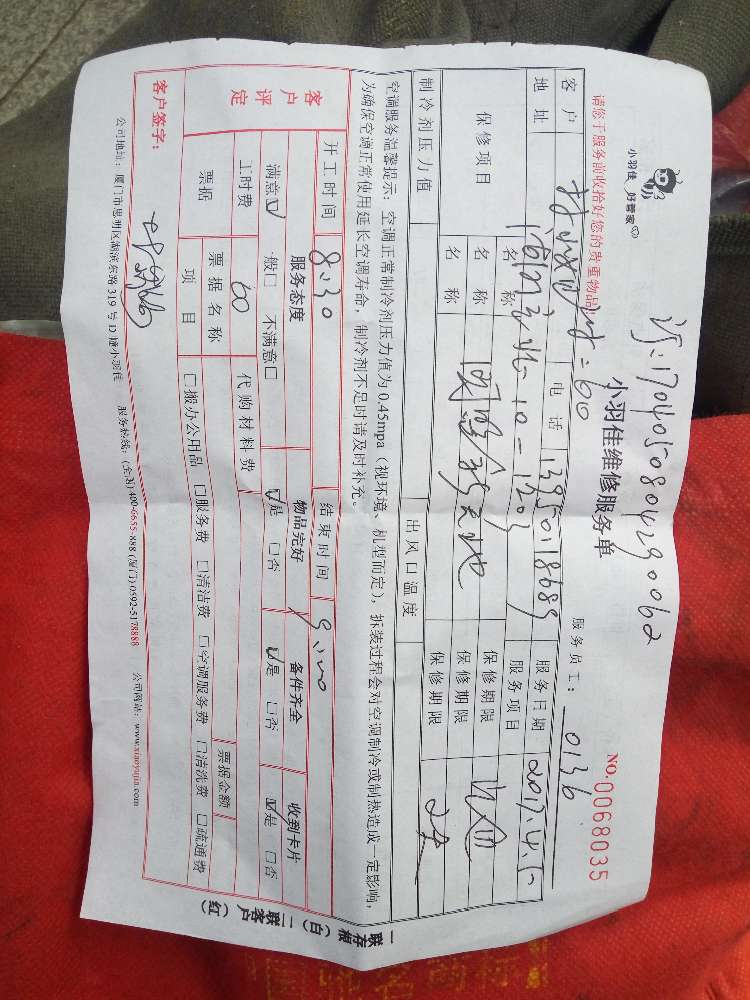 1704050804290062
小羽佳 好管家
小羽佳维修服务单
NO.0068035
请您于服务前收拾好您的贵重物品!
服务员工: 0136
客户 电话 13950118689 服务日期 2017.4.5
地址 10-1203 服务项目
保修项目 名称 保修期限
名称 保修期限
名称 保修期限
制冷剂压力值 出风口温度
空调服务温馨提示：空调正常制冷剂压力值为0.45mpa（视环境、机型而定），拆装过程会对空调制冷或制热造成一定影响，
为确保空调正常使用延长空调寿命，制冷剂不足时请及时补充。
开工时间 8:30 结束时间 9:00
客户评定 服务态度 物品完好 备件齐全 收到卡片
满意☑ 一般□ 不满意□ ☑是 □否 ☑是 □否 ☑是 □否
工时费 60 代购材料费
票据 票据名称 票据金额
项目 □搬办公用品 □服务费 □清洁费 □空调服务费 □清洗费 □疏通费
客户签字:
公司地址：厦门市思明区湖滨东路319号D幢小羽佳 服务热线：(全国)400-6655-888 (厦门)0592-5178888 公司网站：www.xiaoyujia.com
一联存根（白）二联客户（红）